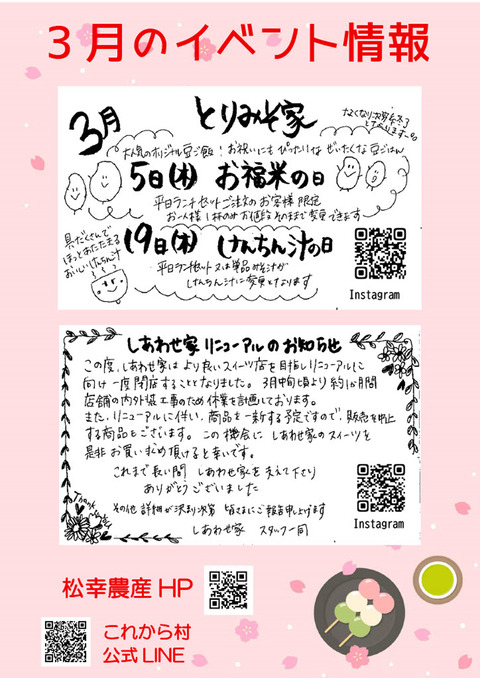 3月のイベント情報
3月
とりみそ家
なくなり次第終了
となります
大人気のオリジナル豆ご飯！お祝いにもぴったりな ぜいたくな豆ごはん
5日(木) お福米の日
平日ランチセットご注文のお客様限定
お一人様1杯のみ お値段そのままで変更できます
19日(木) けんちん汁の日
具だくさんで
ほっとあたたまる
おいしいけんちん汁
平日ランチセット又は単品みそ汁が
けんちん汁に変更となります
Instagram
しあわせ家 リニューアルのお知らせ
この度、しあわせ家は より良いスイーツ店を目指しリニューアルに
向け一度閉店することとなりました。3月中旬頃より約1か月間
店舗の内外装工事のため休業を計画しております。
また、リニューアルに伴い、商品も一新する予定ですので、販売を中止
する商品もございます。この機会に しあわせ家のスイーツを
是非お買い求め頂けると幸いです。
これまで長い間 しあわせ家を支えて下さり
ありがとうございました
その他 詳細が決まり次第 皆さまにご報告申し上げます
しあわせ家 スタッフ一同
Thank you
Instagram
松幸農産HP
これから村
公式LINE